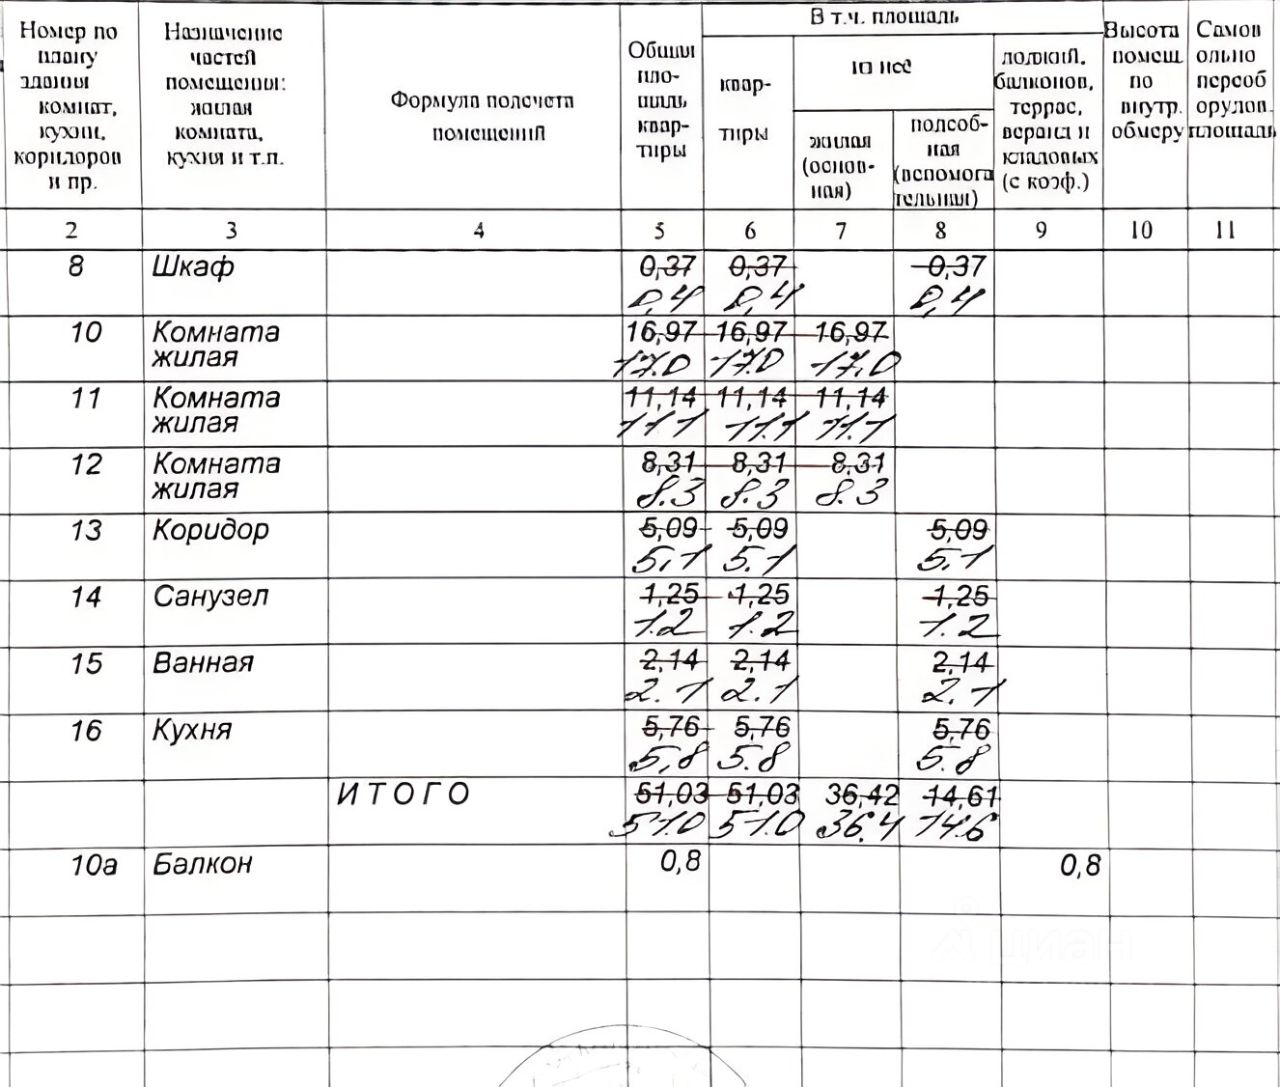 Номер по плану здания комнат, кухни, коридоров и пр.
Назначение частей помещения: жилая комната, кухня и т.п.
Формула подсчета помещений
Общая пло- щадь квар- тиры
В т.ч. площадь
квар- тиры
из неё
жилая (основ- ная)
подсоб- ная (вспомога тельная)
лоджий, балконов, террас, веранд и кладовых (с коэф.)
Высота помещ. по внутр. обмеру
Самов ольно переоб орудов. площадь
2 3 4 5 6 7 8 9 10 11
8 Шкаф 0,37 0,37 0,37
0,4 0,4 0,4
10 Комната 16,97 16,97 16,97
жилая 17.0 17.0 17.0
11 Комната 11,14 11,14 11,14
жилая 11.1 11.1 11.1
12 Комната 8,31 8,31 8,31
жилая 8.3 8.3 8.3
13 Коридор 5,09 5,09 5,09
5,1 5.1 5.1
14 Санузел 1,25 1,25 1,25
1.2 1.2 1.2
15 Ванная 2,14 2,14 2,14
2.1 2.1 2.1
16 Кухня 5,76 5,76 5,76
5,8 5.8 5.8
ИТОГО 51,03 51,03 36,42 14,61
51.0 51.0 36.4 14.6
10а Балкон 0,8 0,8
циан